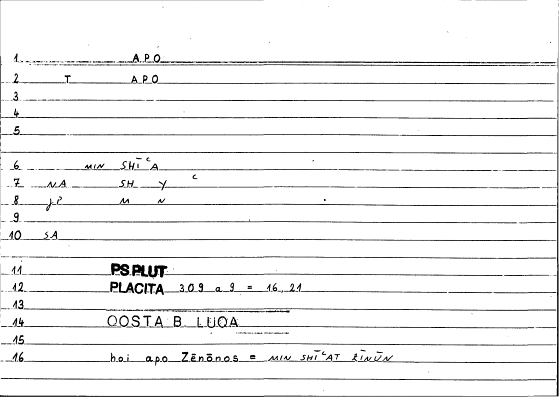 1 APO
2 T APO
3
4
5
6 MIN SHĪʿA
7 NA SH Y ʿ
8 JP M N
9
10 SA
11 PS PLUT
12 PLACITA 309 a 9 = 16, 21
13
14 QOSTA B. LUQA
15
16 hoi apo Zēnōnos = MIN SHĪʿAT ZĪNŪN